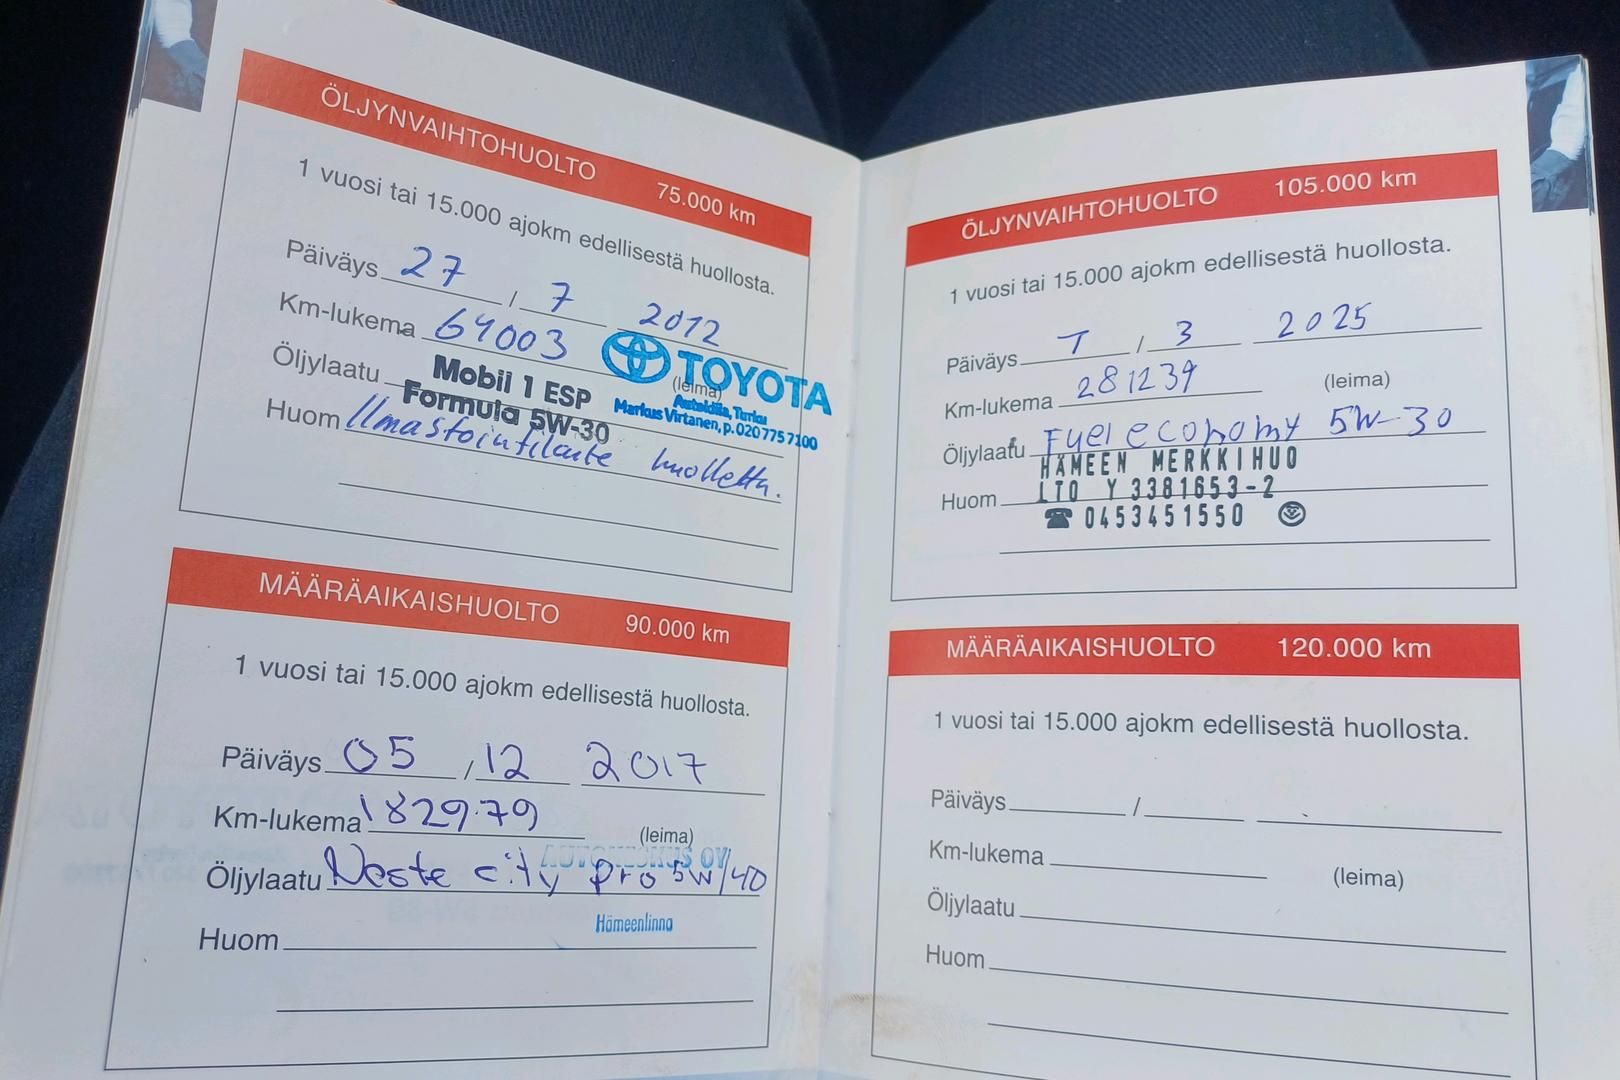 ÖLJYNVAIHTOHUOLTO 75.000 km
1 vuosi tai 15.000 ajokm edellisestä huollosta.
Päiväys 27 / 7 2012
Km-lukema 64003
TOYOTA
(leima)
Öljylaatu Mobil 1 ESP
Formula 5W-30
Autotalo, Turku
Markus Virtanen, p. 020 775 7100
Huom Ilmastointilaite huollettu.
MÄÄRÄAIKAISHUOLTO 90.000 km
1 vuosi tai 15.000 ajokm edellisestä huollosta.
Päiväys 05 / 12 2017
Km-lukema 182979
(leima)
AUTOKESKUS OY
Öljylaatu Neste city pro 5W/40
Hämeenlinna
Huom
ÖLJYNVAIHTOHUOLTO 105.000 km
1 vuosi tai 15.000 ajokm edellisestä huollosta.
Päiväys 7 / 3 2025
Km-lukema 281239 (leima)
Öljylaatu Fuel economy 5W-30
HÄMEEN MERKKIHUO
Huom LTO Y 3381653-2
☎ 0453451550
MÄÄRÄAIKAISHUOLTO 120.000 km
1 vuosi tai 15.000 ajokm edellisestä huollosta.
Päiväys /
Km-lukema (leima)
Öljylaatu
Huom